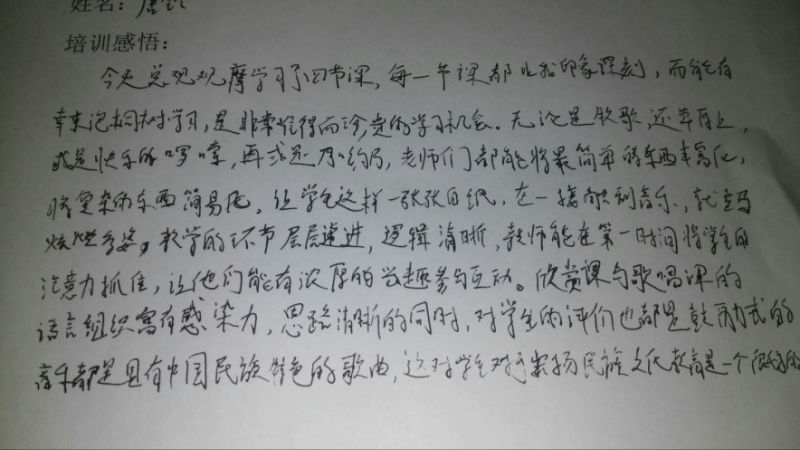 姓名：唐
培训感悟：
今天总观观摩学习了四节课，每一节课都让我印象深刻，而能有
幸来泡桐树学习，是非常难得而珍贵的学习机会。无论是牧歌，还草原上，
或是快乐的啰嗦，再或是凤阳，老师们都能将最简单的东西丰富化，
将复杂的东西简易化。让学生这样一张张白纸，在一接触到音乐，就立马
炫烂多姿，教学的环节层层递进，逻辑清晰，教师能在第一时间将学生的
注意力抓住，让他们能有浓厚的兴趣参与互动。欣赏课与歌唱课的
语言组织富有感染力，思路清晰的同时，对学生的评价也都是鼓励式的
音乐都是具有中国民族特色的歌曲，这对学生对于弘扬民族文化教育是一个很好的